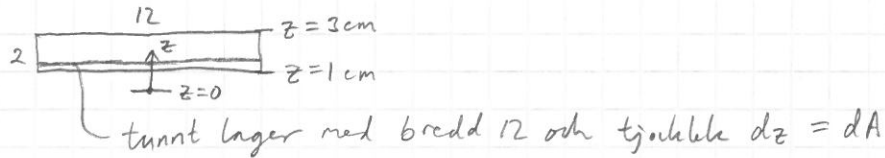 12
z = 3 cm
2
z
z = 1 cm
z = 0
tunnt lager med bredd 12 och tjocklek dz = dA